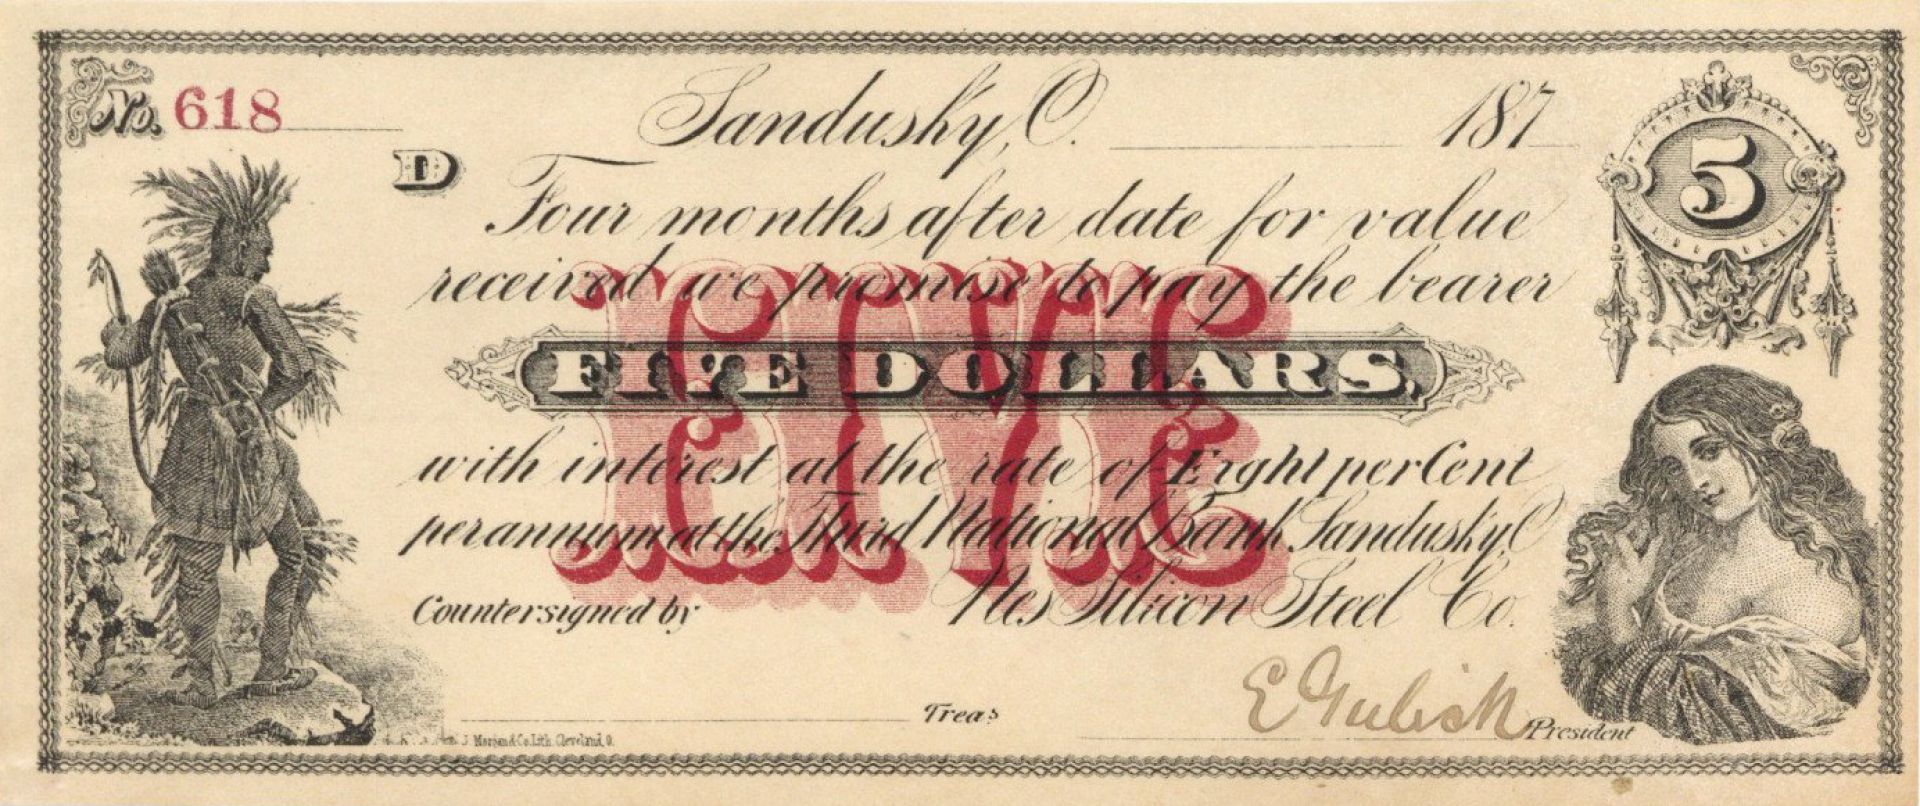 No. 618
Sandusky, O. 187
5
D
Four months after date for value
received we promise to pay the bearer
FIVE
FIVE DOLLARS,
with interest at the rate of Eight per Cent
per annum at the Third National Bank Sandusky, O
Nes Silicon Steel Co.
Countersigned by
Treas
President
J. Morgan & Co. Lith. Cleveland, O.